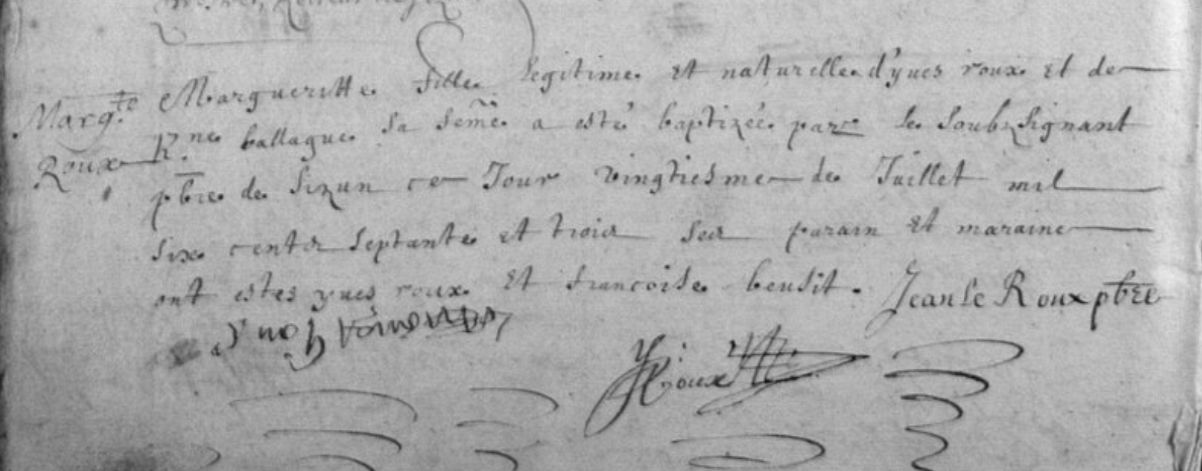 Marg.te
Roux
Margueritte fille legitime et naturelle d'yues roux et de
K.ne ballague sa feme a esté baptizée par le soubzsignant
pbre de Sizun ce Jour vingtiesme de Juillet mil
six cents septante et trois ses parain et maraine
ont estes yues roux et francoise beusit. Jean le Roux pbre
Y: Roux